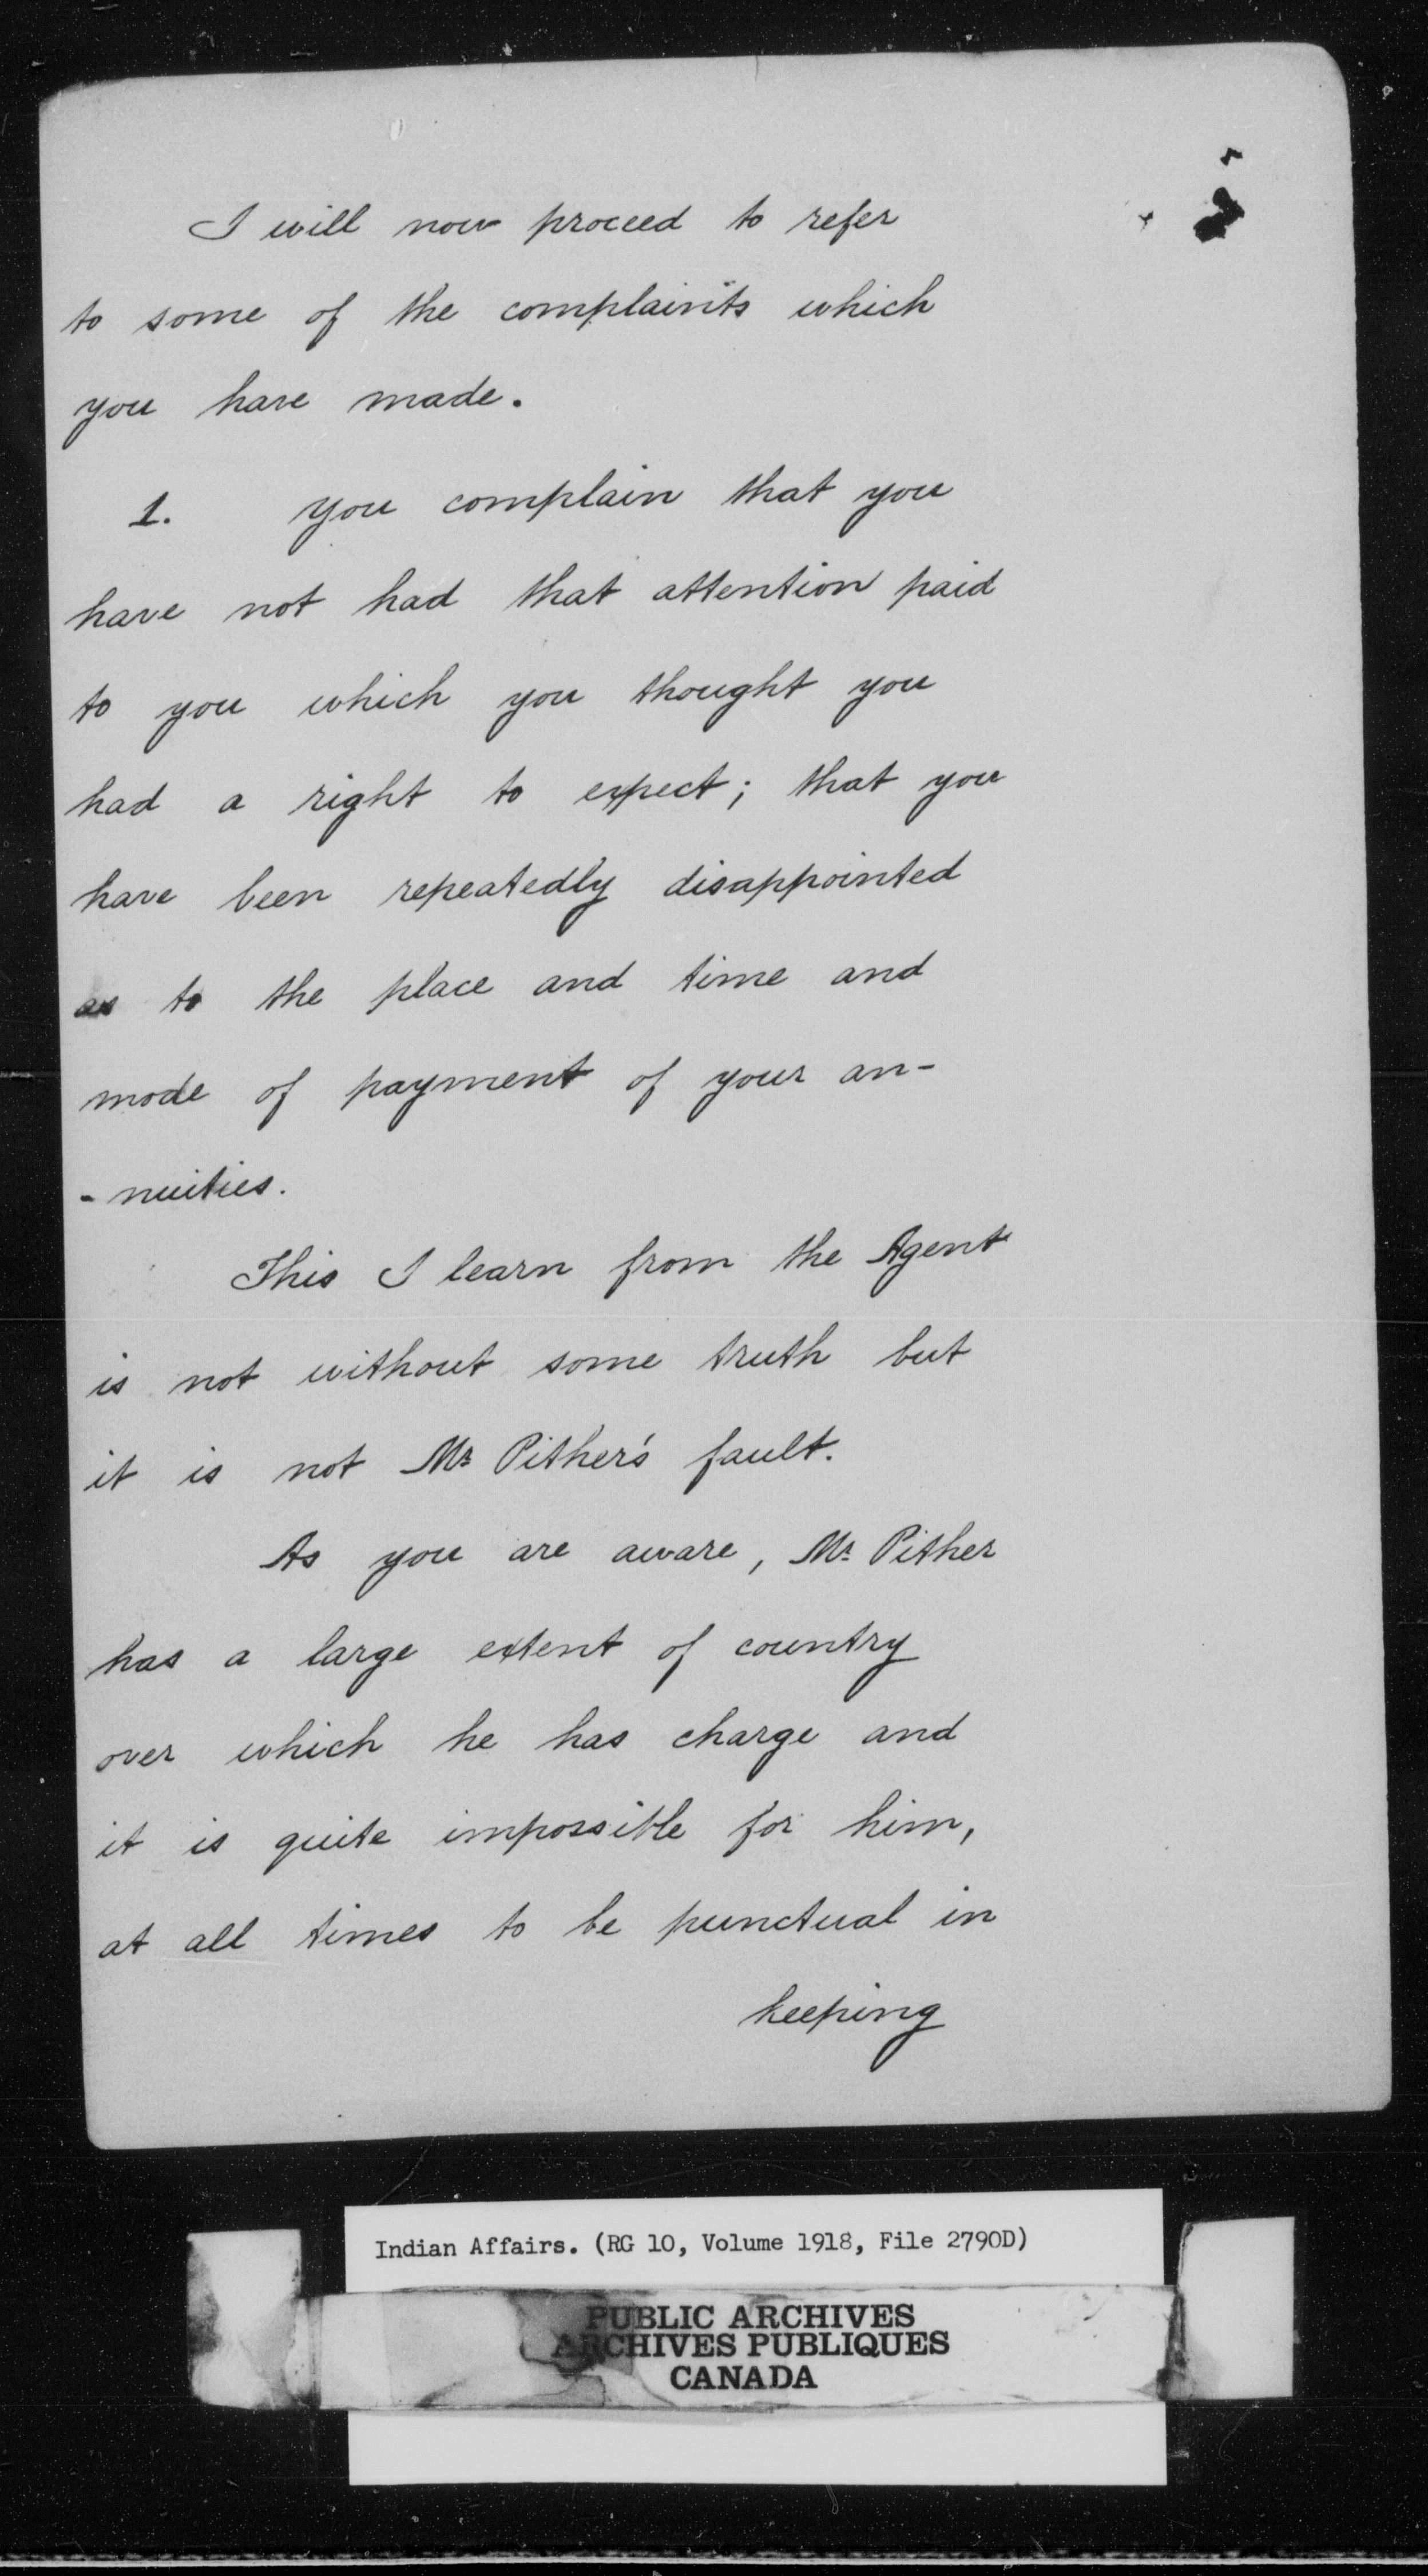 I will now proceed to refer
to some of the complaints which
you have made.
1. You complain that you
have not had that attention paid
to you which you thought you
had a right to expect; that you
have been repeatedly disappointed
as to the place and time and
mode of payment of your an-
-nuities.
This I learn from the Agent
is not without some truth but
it is not Mr Pither's fault.
As you are aware, Mr Pither
has a large extent of country
over which he has charge and
it is quite impossible for him,
at all times to be punctual in
keeping
Indian Affairs. (RG 10, Volume 1918, File 2790D)
PUBLIC ARCHIVES
ARCHIVES PUBLIQUES
CANADA